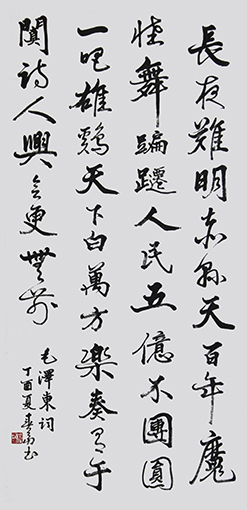 長夜難明赤縣天百年魔
怪舞蹁躚人民五億不團圓
一唱雄鷄天下白萬方樂奏有于
闐詩人興會更無前
毛澤東詞
丁酉夏書